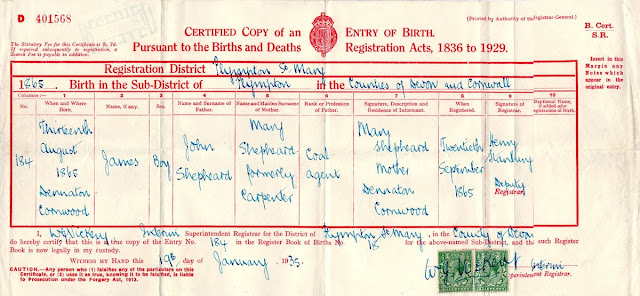 D 401568
CERTIFIED COPY OF AN ENTRY OF BIRTH.
Pursuant to the Births and Deaths Registration Acts, 1836 to 1929.
(Printed by Authority of the Registrar-General.)
B. Cert.
S.R.
The Statutory Fee for this Certificate is 2s. 7d.
If required subsequently to registration, a
Search Fee is payable in addition.
Insert in this
Margin any
Notes which
appear in the
original entry.
Registration District Plympton St Mary
1865 Birth in the Sub-District of Plympton in the Counties of Devon and Cornwall
Columns :— 1 2 3 4 5 6 7 8 9 10
No. When and Where Born. Name, if any. Sex. Name and Surname of Father. Name and Maiden Surname of Mother. Rank or Profession of Father. Signature, Description and Residence of Informant. When Registered. Signature of Registrar. Baptismal Name, if added after Registration of Birth.
184 Thirteenth August 1865 Dennaton Cornwood James Boy John Shepheard Mary Shepheard formerly Carpenter Coal agent Mary Shepheard Mother Dennaton Cornwood Twentieth September 1865 Henry Deputy Registrar.
I, Interim Superintendent Registrar for the District of Plympton St Mary, in the County of Devon
do hereby certify that this is a true copy of the Entry No. 184 in the Register Book of Births No. 18 for the above-named Sub-District, and that such Register
Book is now legally in my custody.
WITNESS MY HAND this 19th day of January, 1935.
CAUTION.—Any person who (1) falsifies any of the particulars on this
Certificate, or (2) uses it as true, knowing it to be falsified, is liable
to Prosecution under the Forgery Act, 1913.
Interim
Superintendent Registrar.